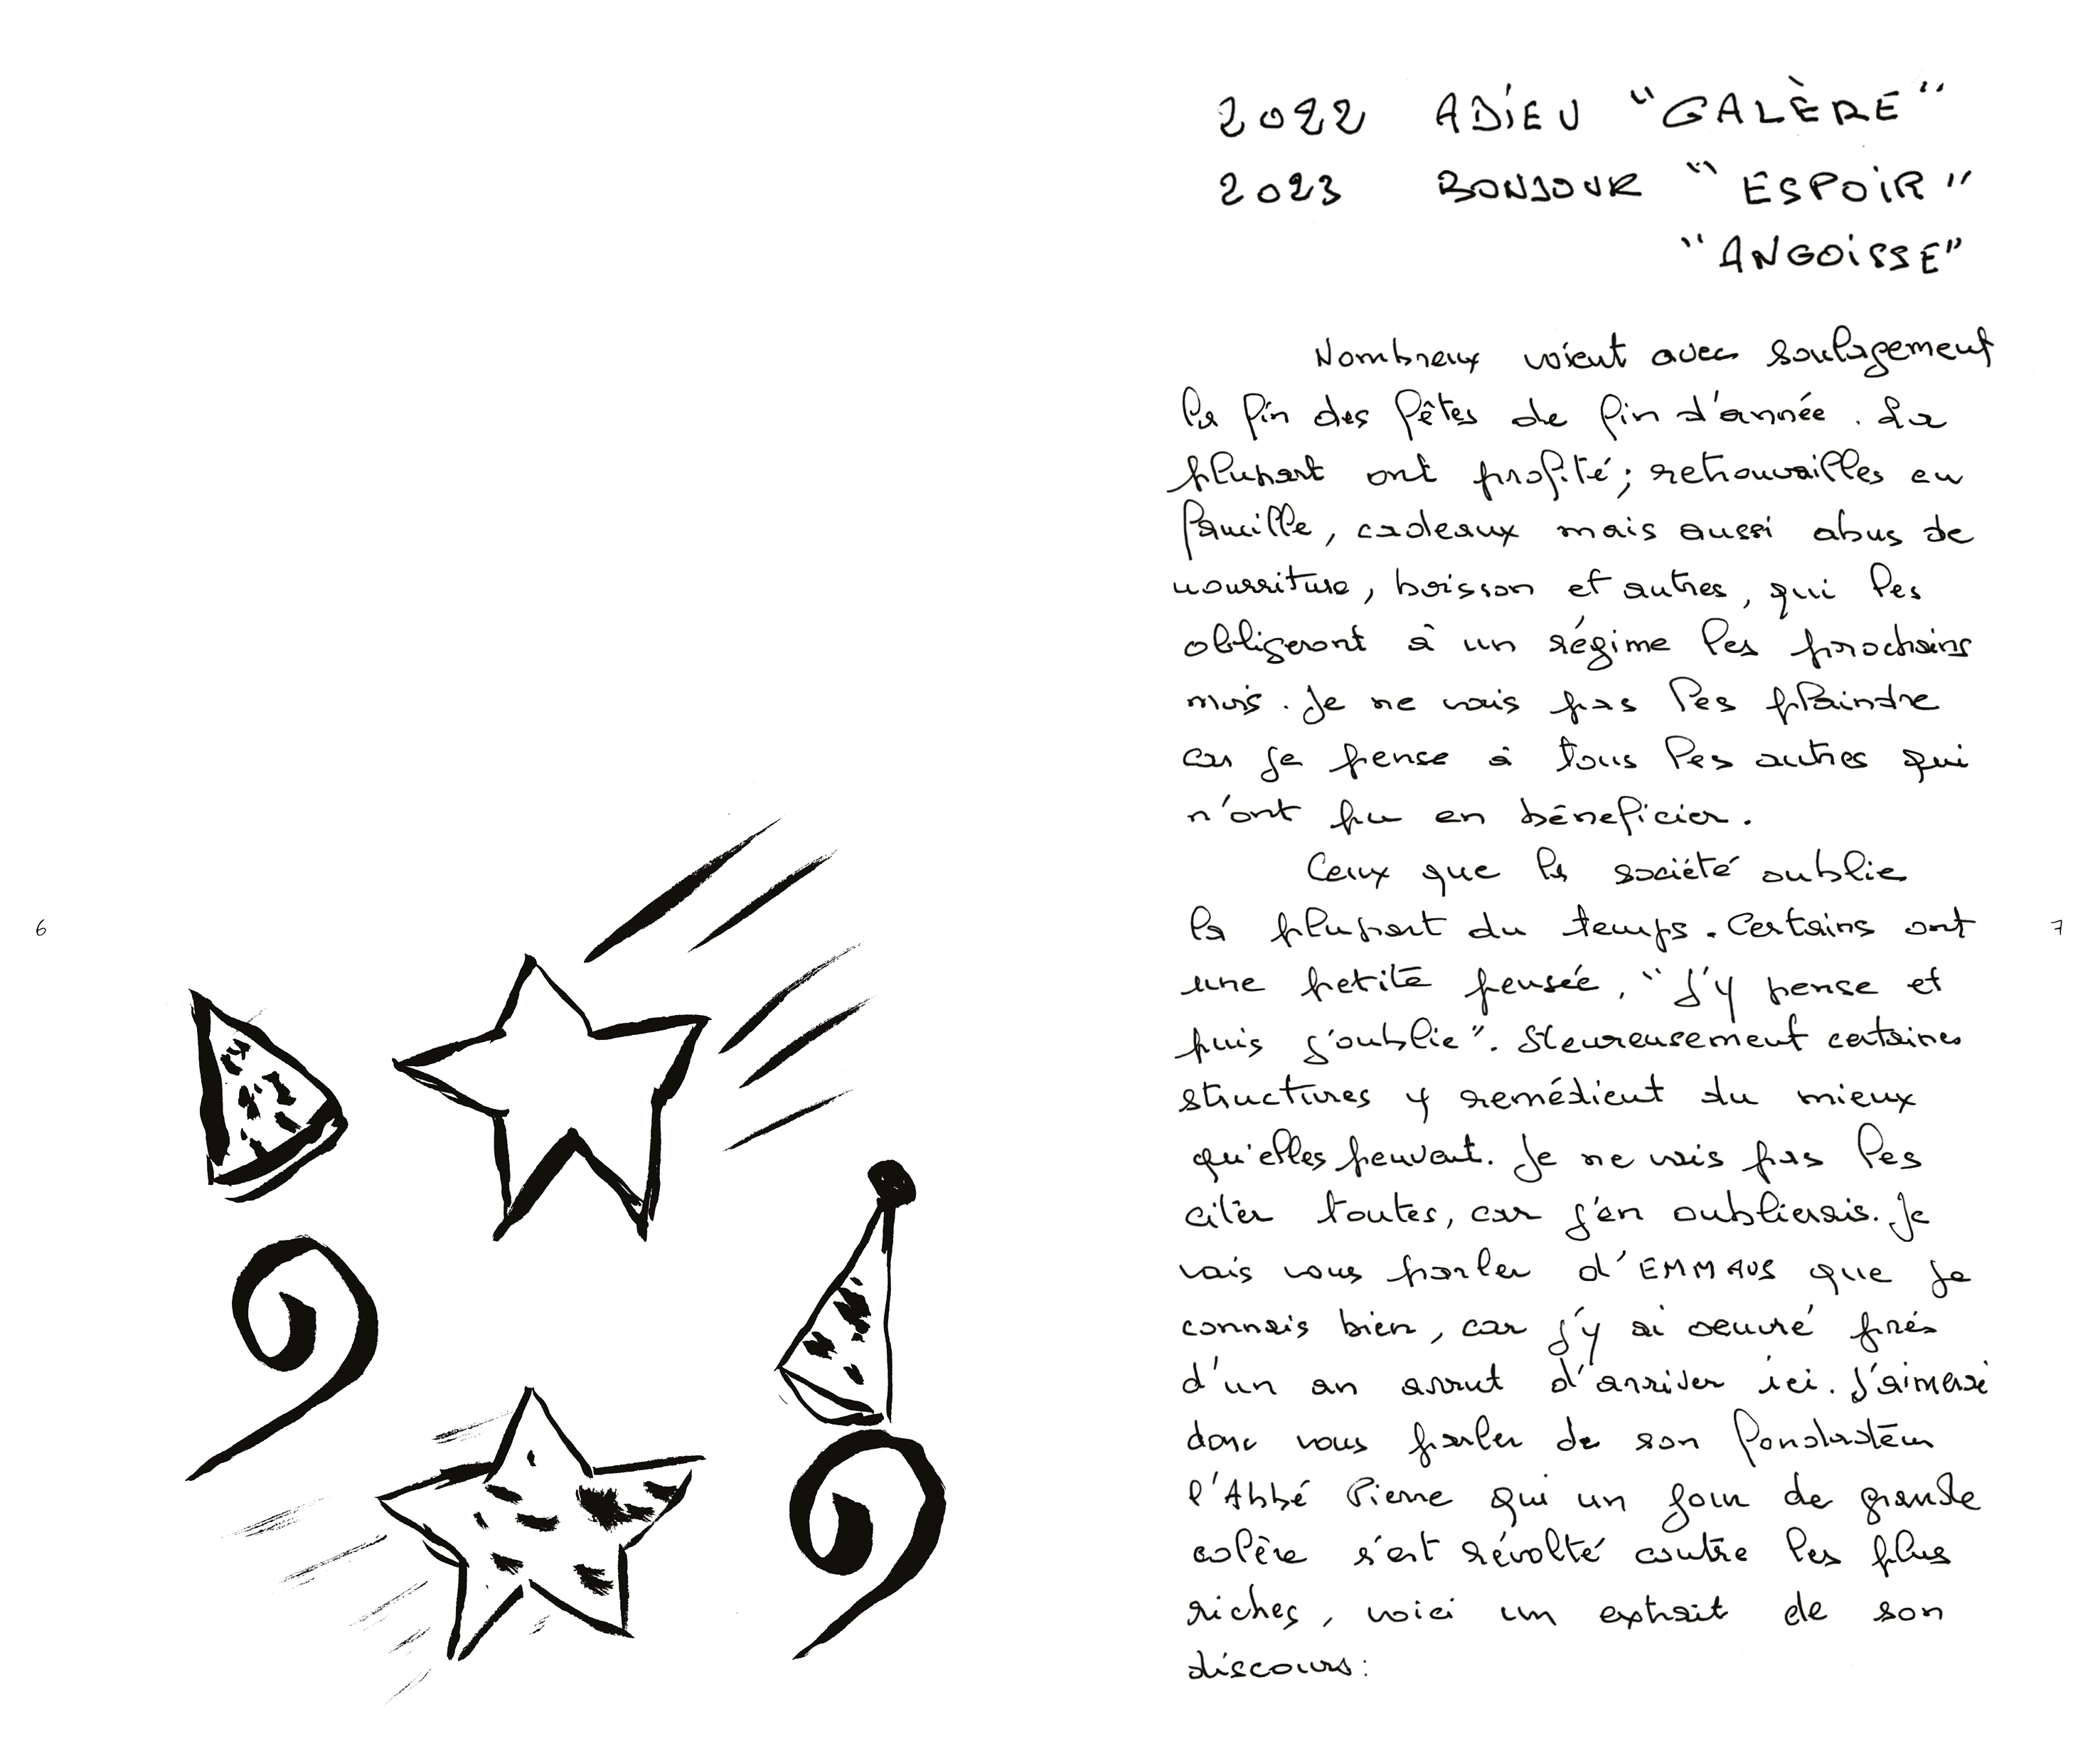 6
2022 ADIEU "GALÈRE"
2023 BONJOUR "ESPOIR"
"ANGOISSE"
Nombreux voient avec soulagement
la fin des fêtes de fin d'année. La
plupart ont profité; retrouvailles en
famille, cadeaux mais aussi abus de
nourriture, boisson et autres, qui les
obligeront à un régime les prochains
mois. Je ne vais pas les plaindre
car je pense à tous les autres qui
n'ont pu en bénéficier.
Ceux que la société oublie
la plupart du temps. Certains ont
une petite pensée, "J'y pense et
puis j'oublie". Heureusement certaines
structures y remédient du mieux
qu'elles peuvent. Je ne vais pas les
citer toutes, car j'en oublierais. Je
vais vous parler d'EMMAUS que je
connais bien, car j'y ai oeuvré près
d'un an avant d'arriver ici. J'aimerai
donc vous parler de son fondateur
l'Abbé Pierre qui un jour de grande
colère s'est révolté contre les plus
riches, voici un extrait de son
discours:
7